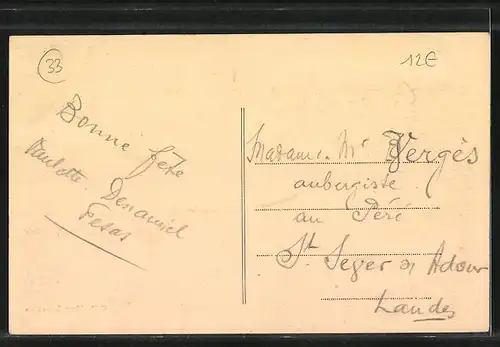 33
12€
Bonne fête
Paulette Denamiel
Madame Mr Vergès
aubergiste
au Péré
St Sever s/ Adour
Landes